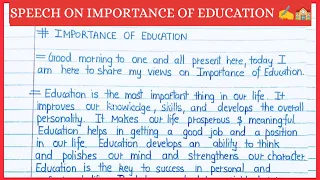 SPEECH ON IMPORTANCE OF EDUCATION ✍️🏫
# IMPORTANCE OF EDUCATION
⇒ Good morning to one and all present here, today I
am here to share my views on Importance of Education.
⇒ Education is the most important thing in our life. It
improves our knowledge, skills, and develops the overall
personality. It Makes our life prosperous & meaningful.
Education helps in getting a good job and a position
in our life. Education develops an ability to think
and polishes our mind and strengthens our character.
Education is the key to success in personal and